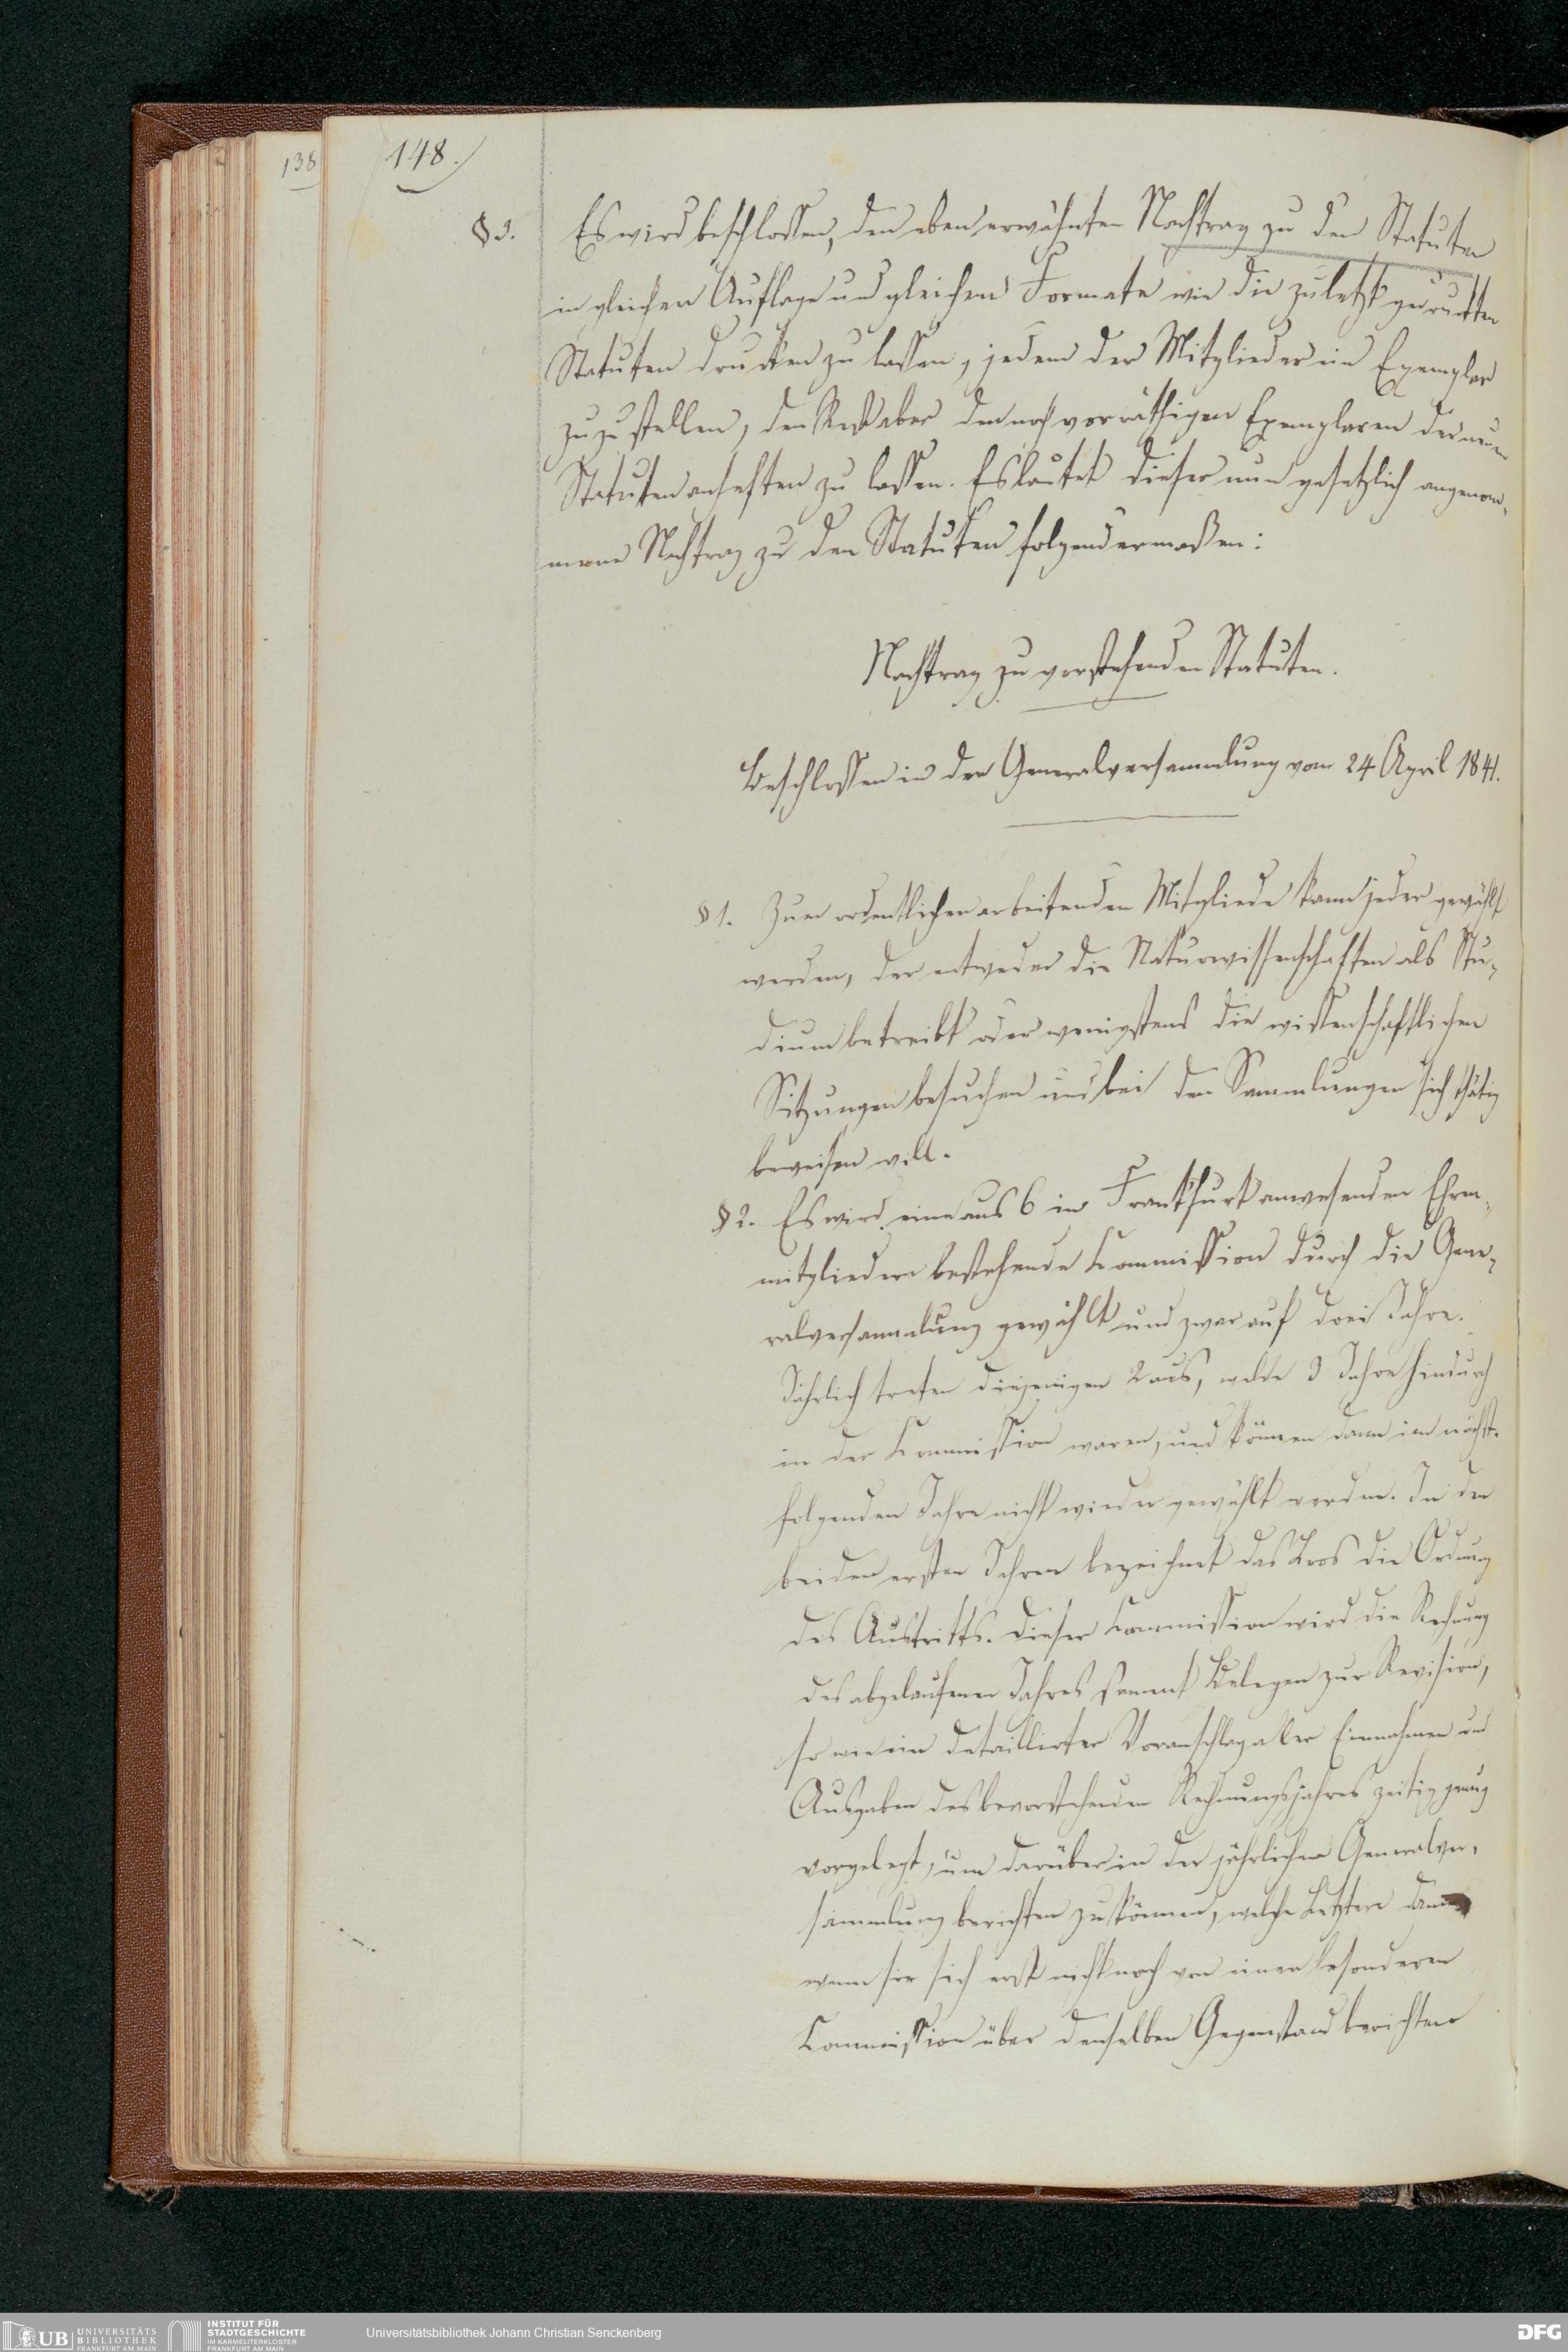 138
148.
§ 3. Es wird beschlossen, den eben erwähnten Nachtrag zu den Statuten
in gleicher Auflage und gleichem Formate wie die zuletzt gedruckten
Statuten drucken zu lassen, jedem der Mitglieder ein Exemplar
zuzustellen, den Rest aber den noch vorräthigen Exemplaren der neuen
Statuten anheften zu lassen. Es lautet dieser nun gesetzlich angenom-
mene Nachtrag zu den Statuten folgendermaßen:
Nachtrag zu vorstehenden Statuten.
Beschlossen in der Generalversammlung vom 24 April 1841.
§ 1. Zum ordentlichen arbeitenden Mitgliede kann jeder gewählt
werden, der entweder die Naturwissenschaften als Stu-
dium betreibt oder wenigstens die wissenschaftlichen
Sitzungen besuchen und bei den Sammlungen sich thätig
beweisen will.
§ 2. Es wird eine aus 6 in Frankfurt anwesenden Ehren-
mitgliedern bestehende Commission durch die Gene-
ralversammlung gewählt und zwar auf drei Jahre.
Jährlich treten diejenigen 2 aus, welche 3 Jahre hindurch
in der Commission waren, und können dann im nächst-
folgenden Jahre nicht wieder gewählt werden. In den
beiden ersten Jahren bezeichnet das Loos die Ordnung
des Austritts. Dieser Commission wird die Rechnung
des abgelaufenen Jahres sammt Belegen zur Revision,
so wie ein detaillirter Voranschlag aller Einnahmen und
Ausgaben des bevorstehenden Rechnungsjahres zeitig genug
vorgelegt, um darüber in der jährlichen Generalver-
sammlung berichten zu können, welche Letztere dann
wenn sie sich erst nicht noch von einer besonderen
Commission über denselben Gegenstand berichten
UB UNIVERSITÄTS
BIBLIOTHEK
FRANKFURT AM MAIN
INSTITUT FÜR
STADTGESCHICHTE
IM KARMELITERKLOSTER
FRANKFURT AM MAIN
Universitätsbibliothek Johann Christian Senckenberg
DFG